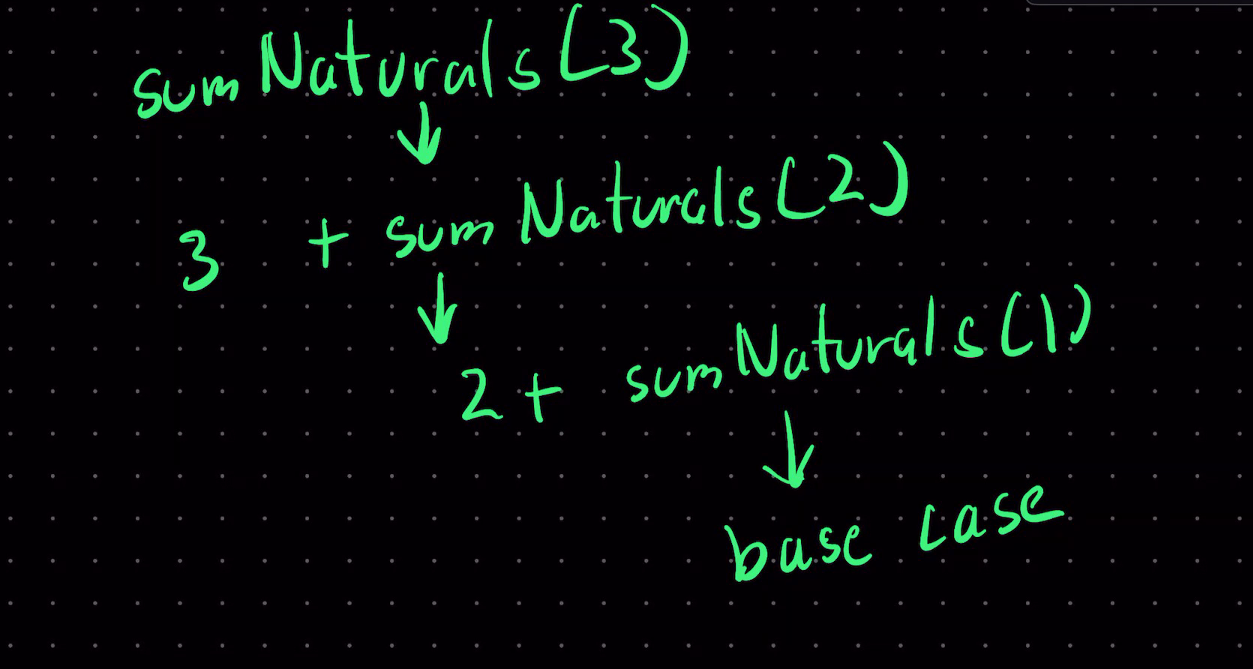 sumNaturals(3)
↓
3 + sumNaturals(2)
↓
2 + sumNaturals(1)
↓
base case